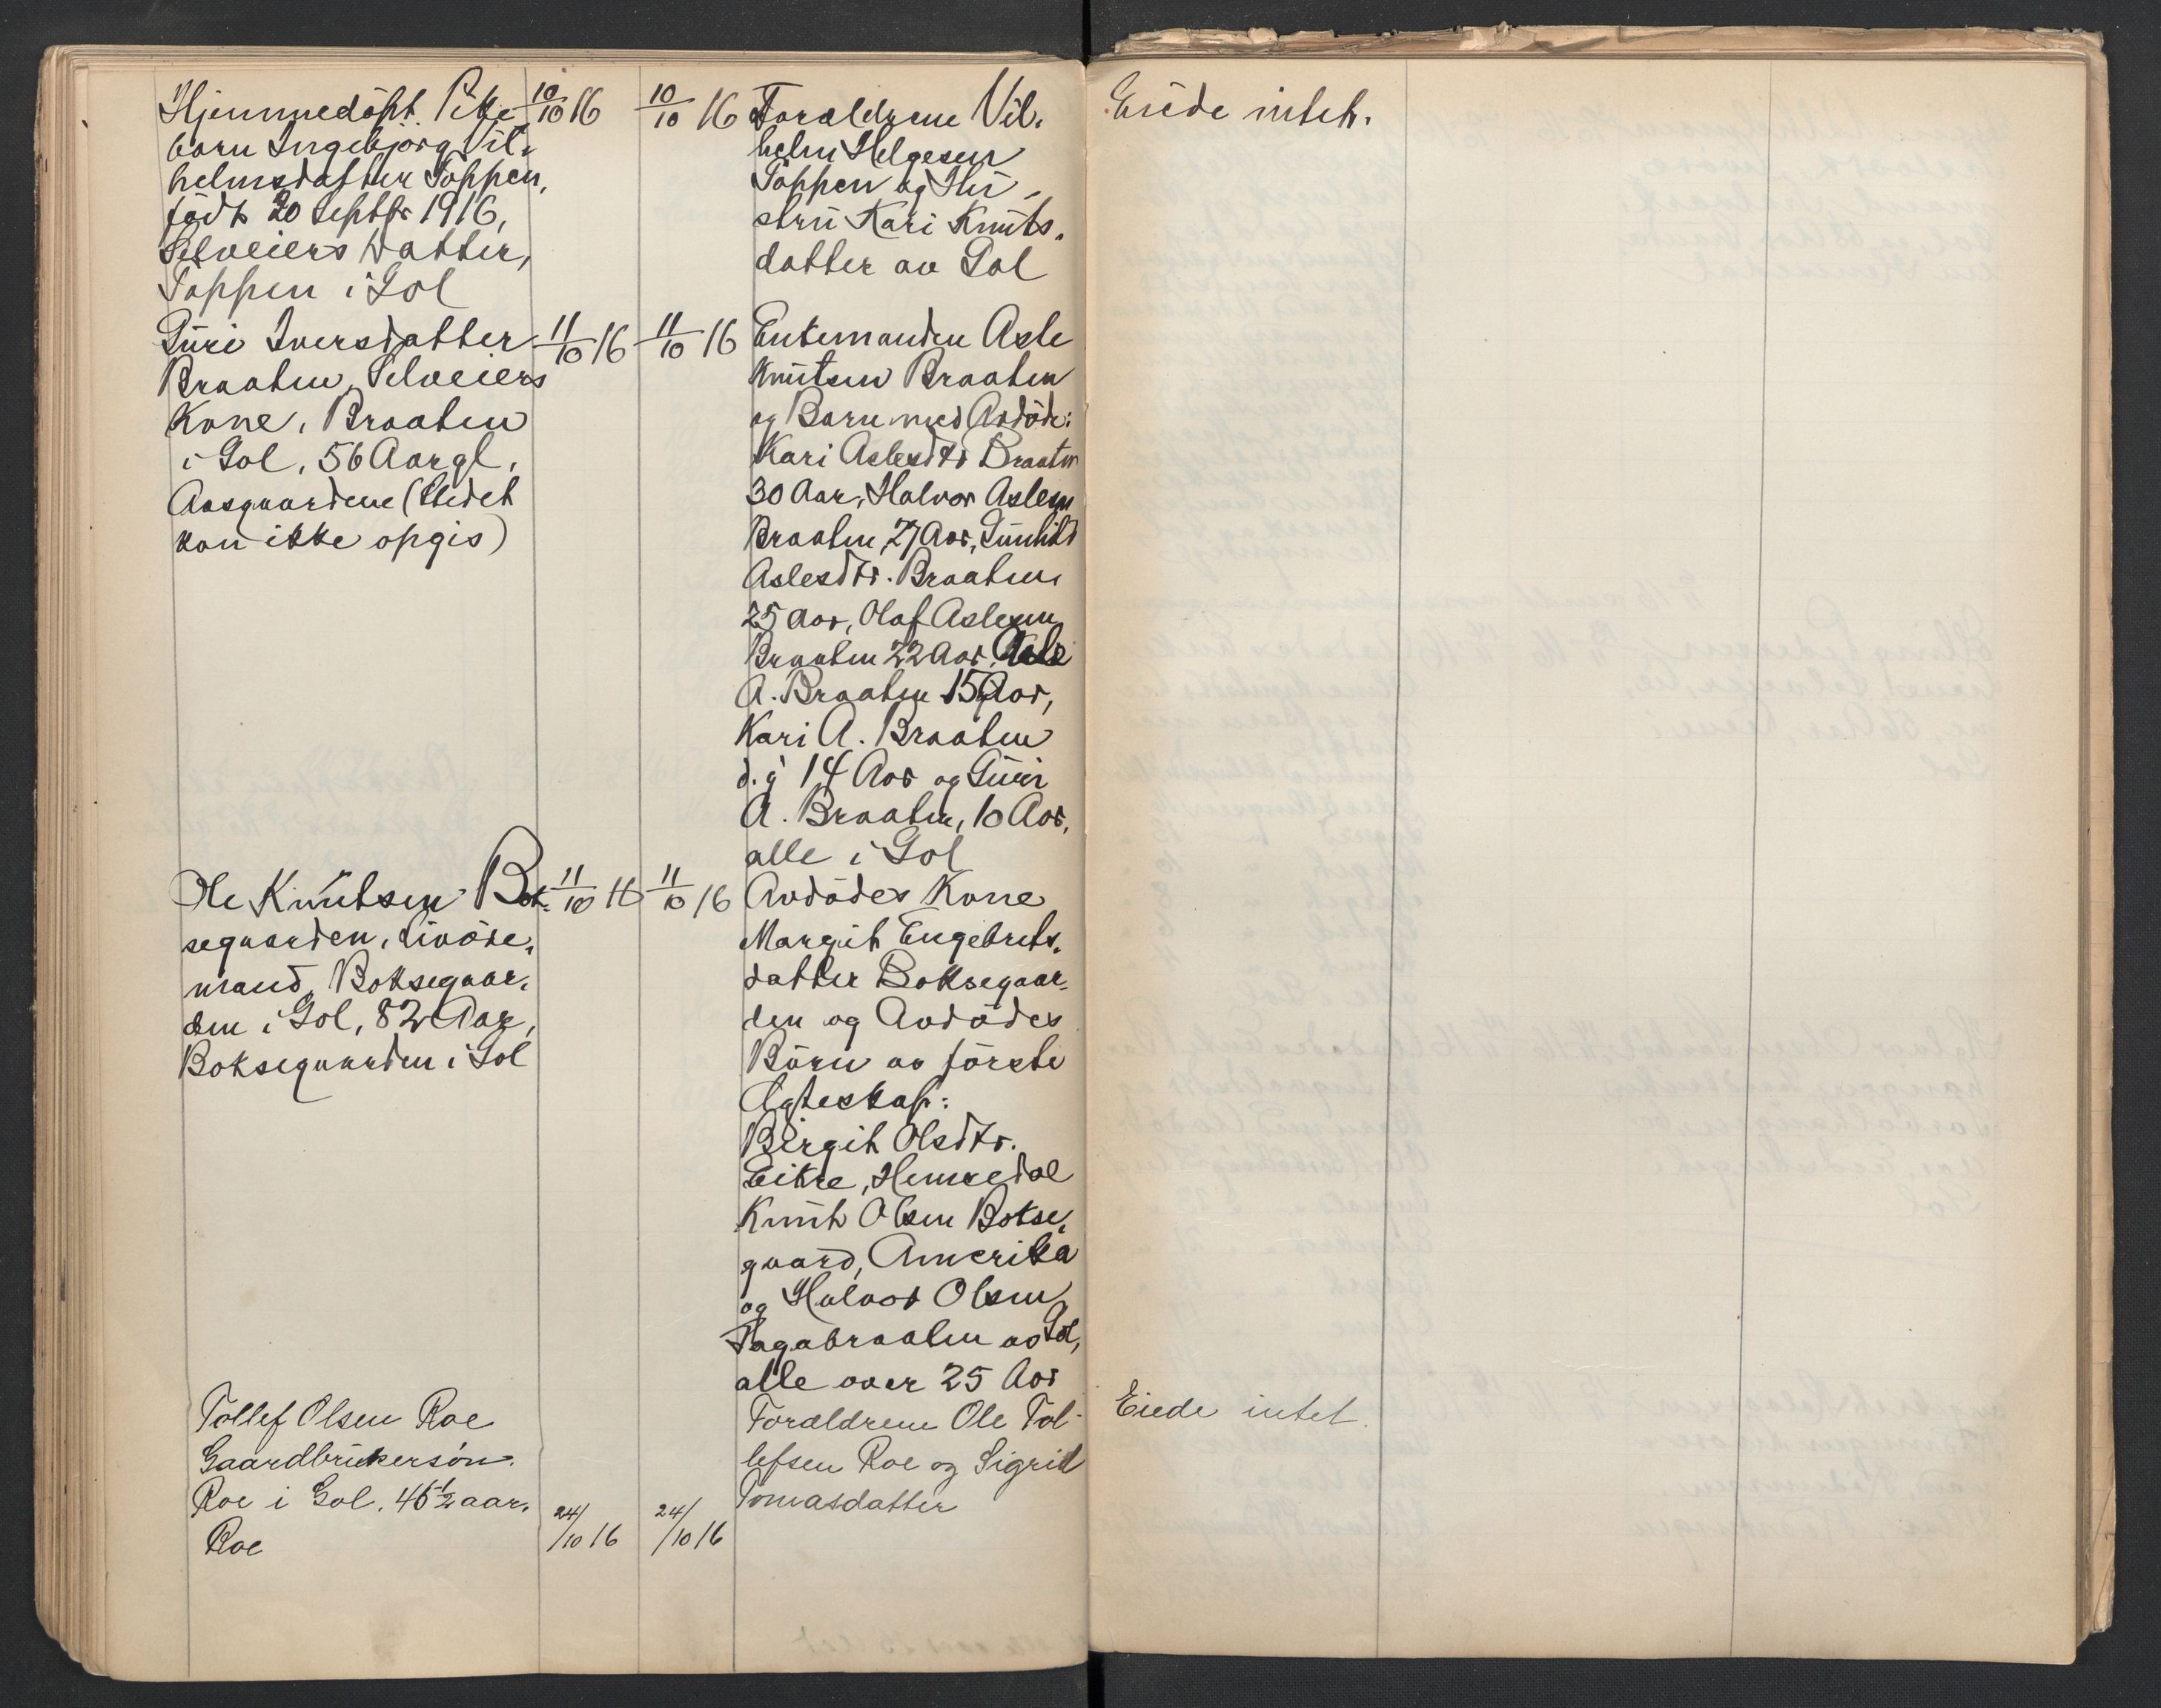 Hjemmedöpt. Pike-
barn Ingebjörg Vil-
helmsdatter Toppen,
född 20 Septbr 1916,
Selveiers Datter,
Toppen i Gol
10/10 16
10/10 16
Foraldrene Vil-
helm Helgesen
Toppen og Hu-
stru Kari Knuts-
datter av Gol
Eiede intet.
Guri Iversdatter
Braaten, Selveiers
Kone, Braaten
i Gol, 56 Aar gl.
Aasgaardene (Stedet
kan ikke opgis)
11/10 16
11/10 16
Enkemanden Asle
Knutsen Braaten
og Barn med Avdöde:
Kari Aslesdtr Braaten
30 Aar, Halvor Aslesen
Braaten 27 Aar, Gunhild
Aslesdtr. Braaten
25 Aar, Olaf Aslesen
Braaten 22 Aar, Asle
A. Braaten 15 Aar,
Kari A. Braaten
d.y. 14 Aar og Guri
A. Braaten, 10 Aar,
alle i Gol
Ole Knutsen Bok-
segaarden, Livöre-
mand, Boksegaar-
den i Gol, 82 Aar,
Boksegaarden i Gol
11/10 16
11/10 16
Avdödes Kone
Margit Engebrets-
datter Boksegaar-
den og Avdödes
Börn av förste
Ægteskap:
Birgit Olsdtr.
Eikre, Hemsedal
Knut Olsen Bokse-
gaard, Amerika
og Halvor Olsen
Tragabraaten av Gol,
alle over 25 Aar
Tollef Olsen Roe
Gaardbrukersön.
Roe i Gol. 45 1/2 aar.
Roe
24/10 16
24/10 16
Foraldrene Ole Tol-
lefsen Roe og Sigrid
Tomasdatter
Eiede intet.